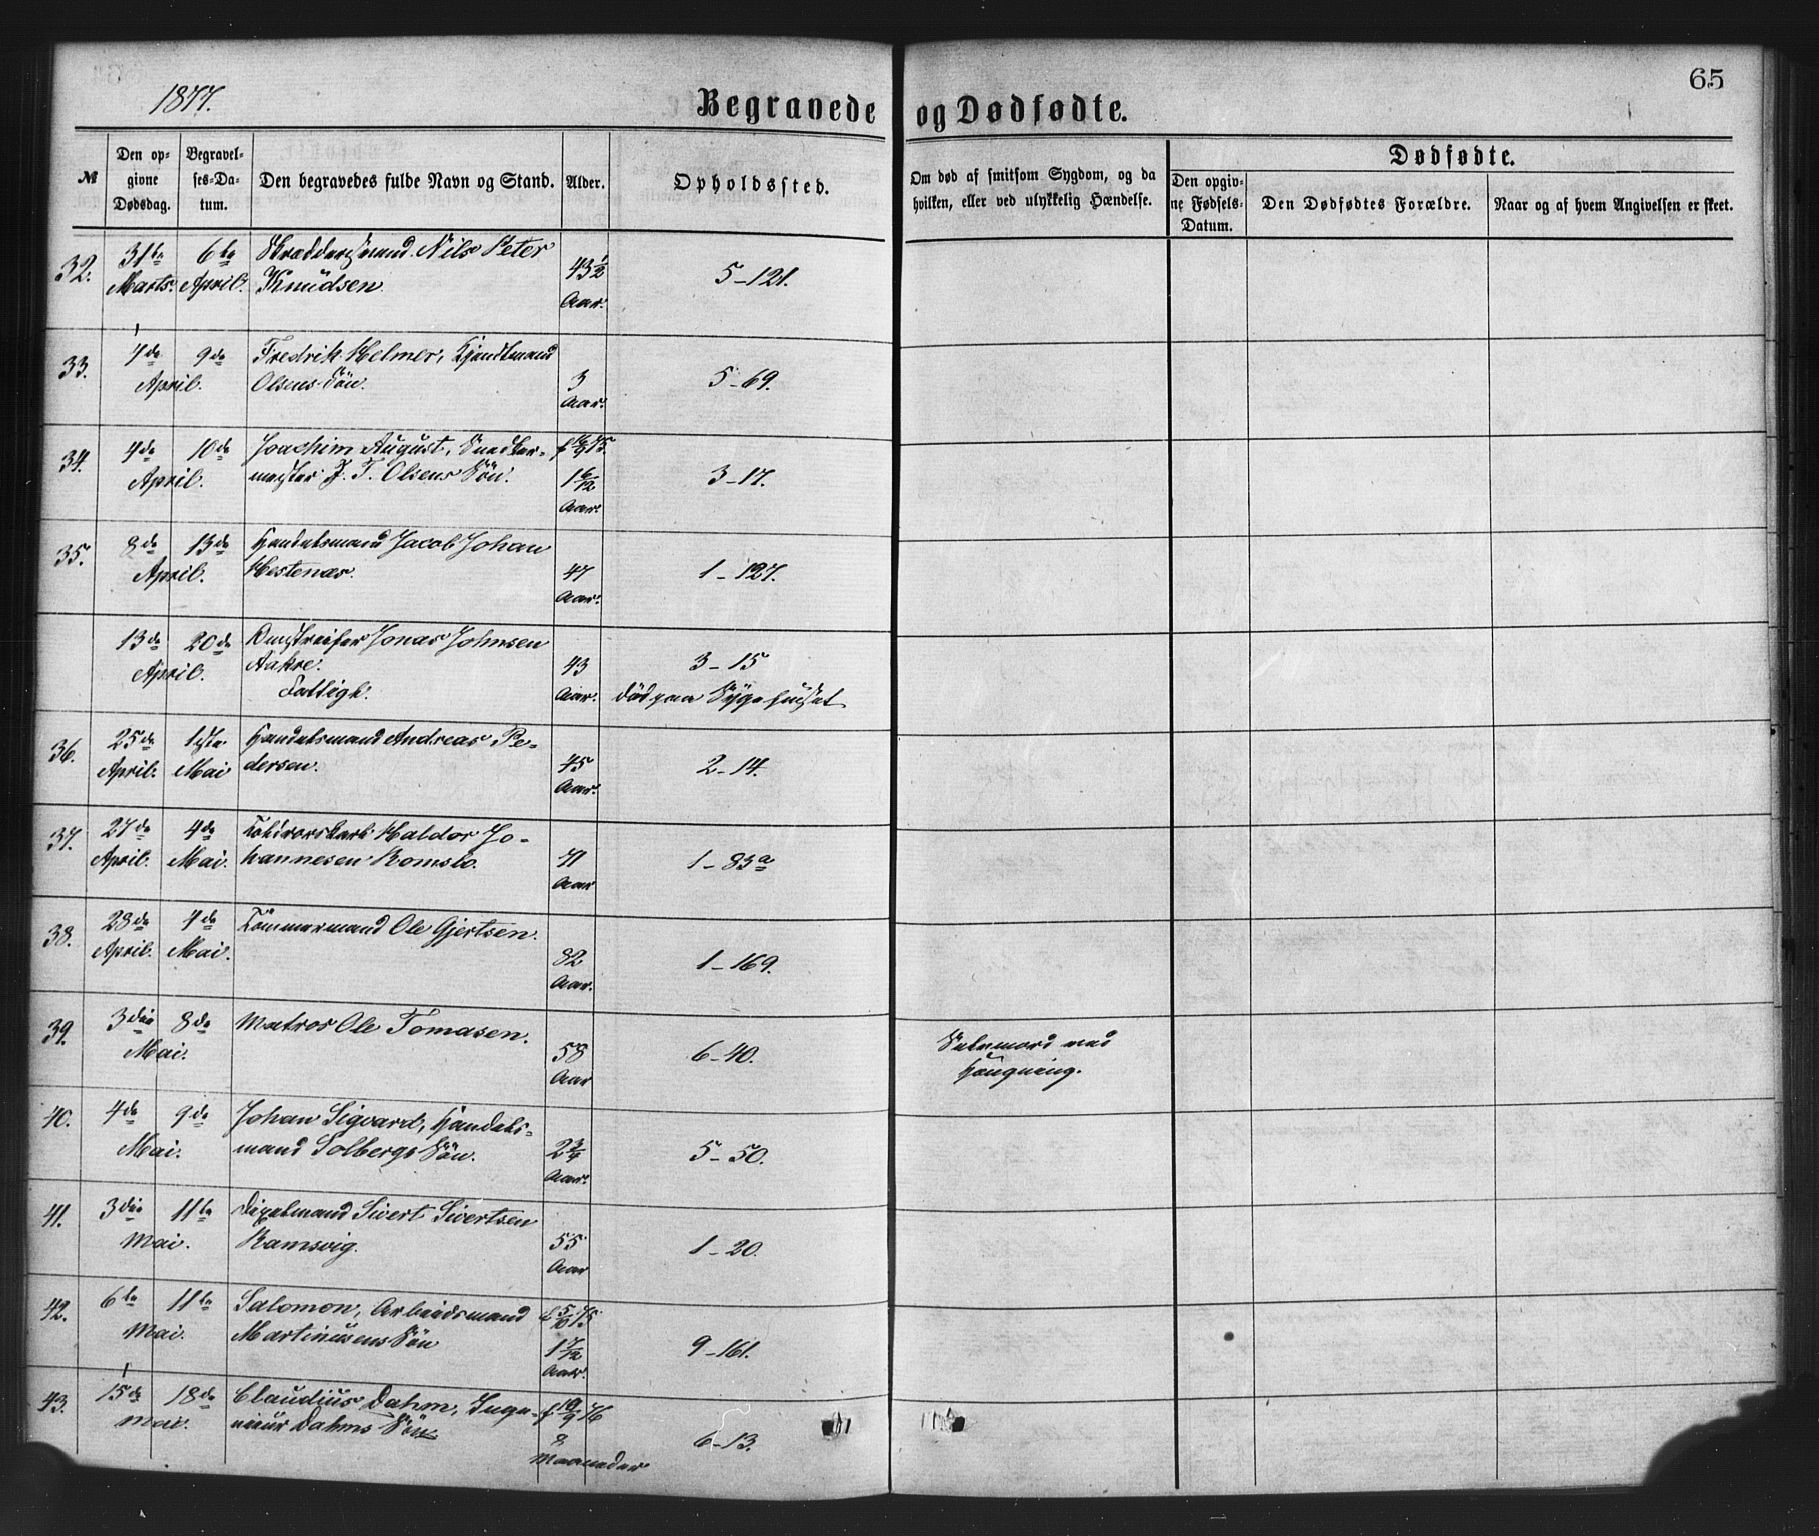 1877.
65
Begravede og Dødfødte.
№
Den opgivne Dødsdag.
Begravelses-Datum.
Den begravedes fulde Navn og Stand.
Alder.
Opholdssted.
Om død af smitsom Sygdom, og da hvilken, eller ved ulykkelig Hændelse.
Dødfødte.
Den opgivne Fødsels-Datum.
Den Dødfødtes Forældre.
Naar og af hvem Angivelsen er skeet.
32. 31te Marts. 6te April. Skræddersvend Nils Peter
Knudsen. 43½ Aar. 5-121.
33. 7de 9de April. Fredrik Helmer, Handlmand
Olsens Sön. 3 Aar. 5-69.
34. 4de 10de April. Joachim August, Snedker-
mester J. T. Olsens Sön. f 16/9 75. 1 6/12 Aar. 3-17.
35. 8de 13de April. Handelsmand Jacob Johan
Hestenæs. 47 Aar. 1-127.
13de 20de April. Omstreifer Jonas Johnsen
Aakre. 43 Aar. 3-15
Fattigk. död paa Sygehuset
36. 25de April. 1ste Mai Handelsmand Andreas Pe-
dersen. 45 Aar. 2-14.
37. 27de April. 4de Mai. Haldor Jo-
hannesen Romslo. 41 Aar 1-83a
38. 28de April. 4de Mai. Tömmermand Ole Gjertsen.
82 Aar. 1-169.
39. 3die 8de Mai. Matros Ole Tomasen.
58 Aar 6-40. Selvmord ved
Hængning.
40. 4de 9de Mai. Johan Sigvard, Handels-
mand Solbergs Sön. 2¾ Aar. 5-50.
41. 3die 11te Mai. Sivert Sivertsen
Ramsvig. 55 Aar 1-20.
42. 6te 11te Mai. Salomon, Arbeidsmand
Martinusens Sön f 5/10 75 1 7/12 Aar. 9-161.
43. 15de 18de Mai. Claudius Dahm, Inge-
nieur Dahms Sön f 10/9 76
8 Maaneder 6-13.